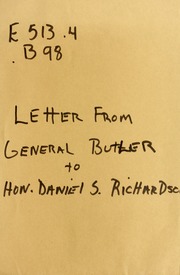 E 513 .4
.B98
LETTER FROM
GENERAL BUTLER
to
HON. DANIEL S. RICHARDSC